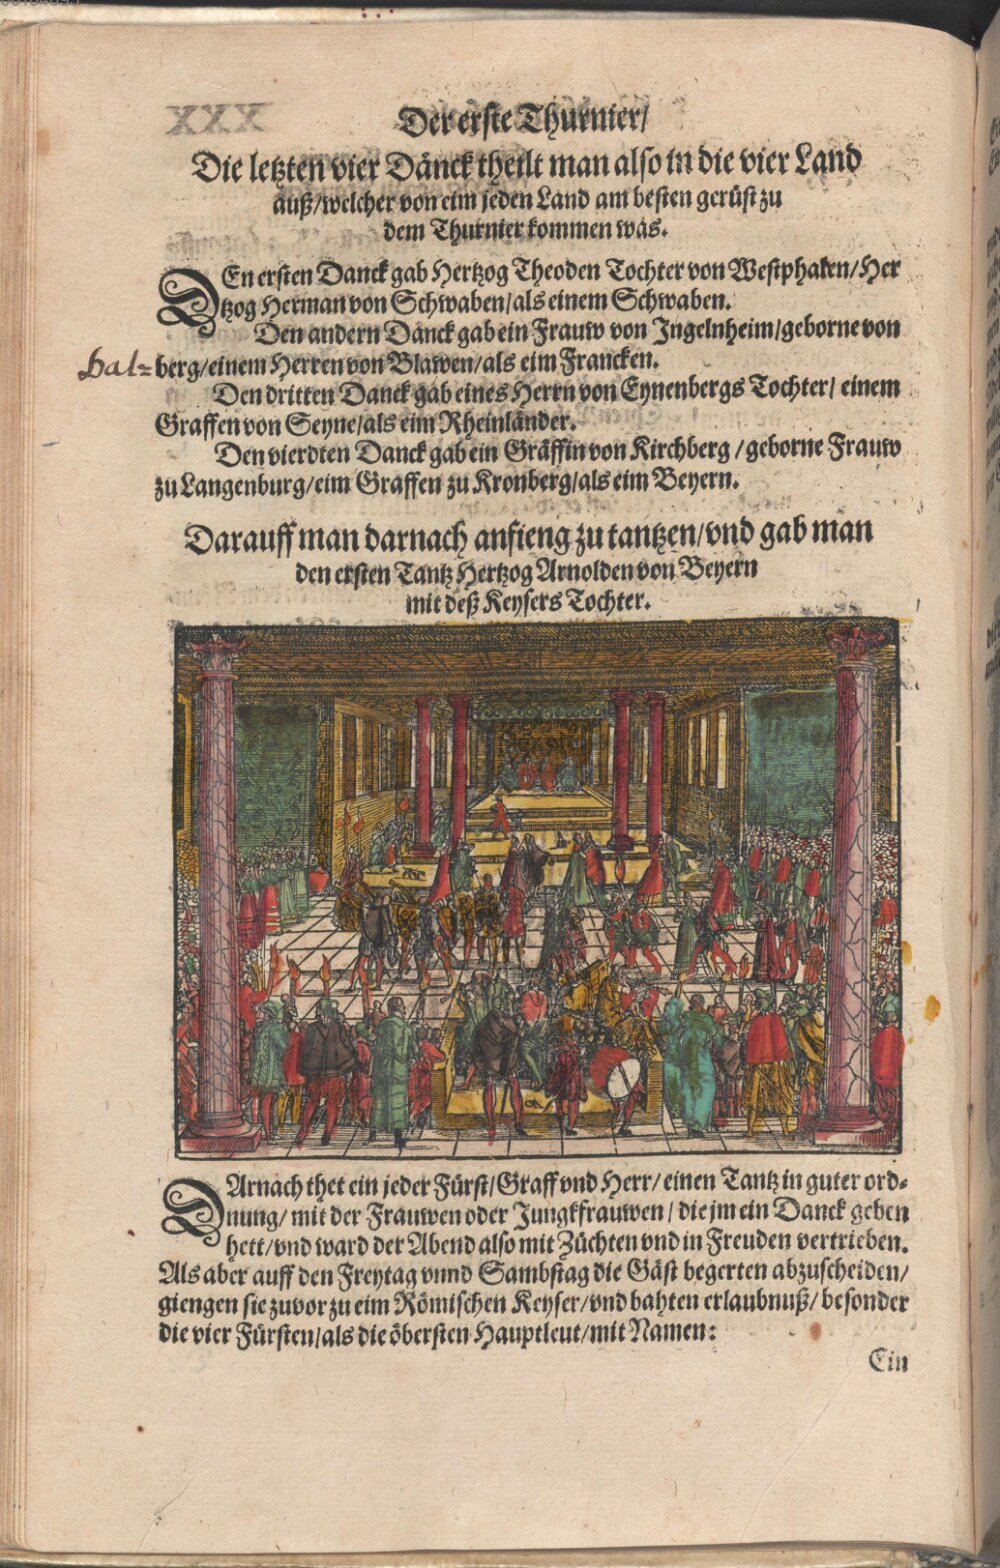 XXX
Der erste Thurnier/
Die letzten vier Dänck theilt man also in die vier Land
auß/welcher von eim jeden Land am besten gerüst zu
dem Thurnier kommen was.
DEn ersten Danck gab Hertzog Theoden Tochter von Westphalen/Her
tzog Herman von Schwaben/als einem Schwaben.
Den andern Danck gab ein Frauw von Ingelnheim/geborne von
Hal=berg/einem Herren von Blawen/als eim Francken.
Den dritten Danck gab eines Herrn von Eynenbergs Tochter/ einem
Graffen von Seyne/als eim Rheinländer.
Den vierdten Danck gab ein Gräffin von Kirchberg /geborne Frauw
zu Langenburg/eim Graffen zu Kronberg/als eim Beyern.
Darauff man darnach anfieng zu tantzen/vnd gab man
den ersten Tantz Hertzog Arnolden von Beyern
mit deß Keysers Tochter.
DArnach thet ein jeder Fürst/Graff vnd Herr/einen Tantz in guter ord-
nung/ mit der Frauwen oder Jungkfrauwen / die jm ein Danck geben
hett/vnd ward der Abend also mit Züchten vnd in Freuden vertrieben.
Als aber auff den Freytag vnnd Sambstag die Gäst begerten abzuscheiden/
giengen sie zuvor zu eim Römischen Keyser/vnd bahten erlaubnuß/besonder
die vier Fürsten/als die öbersten Hauptleut/mit Namen:
Ein